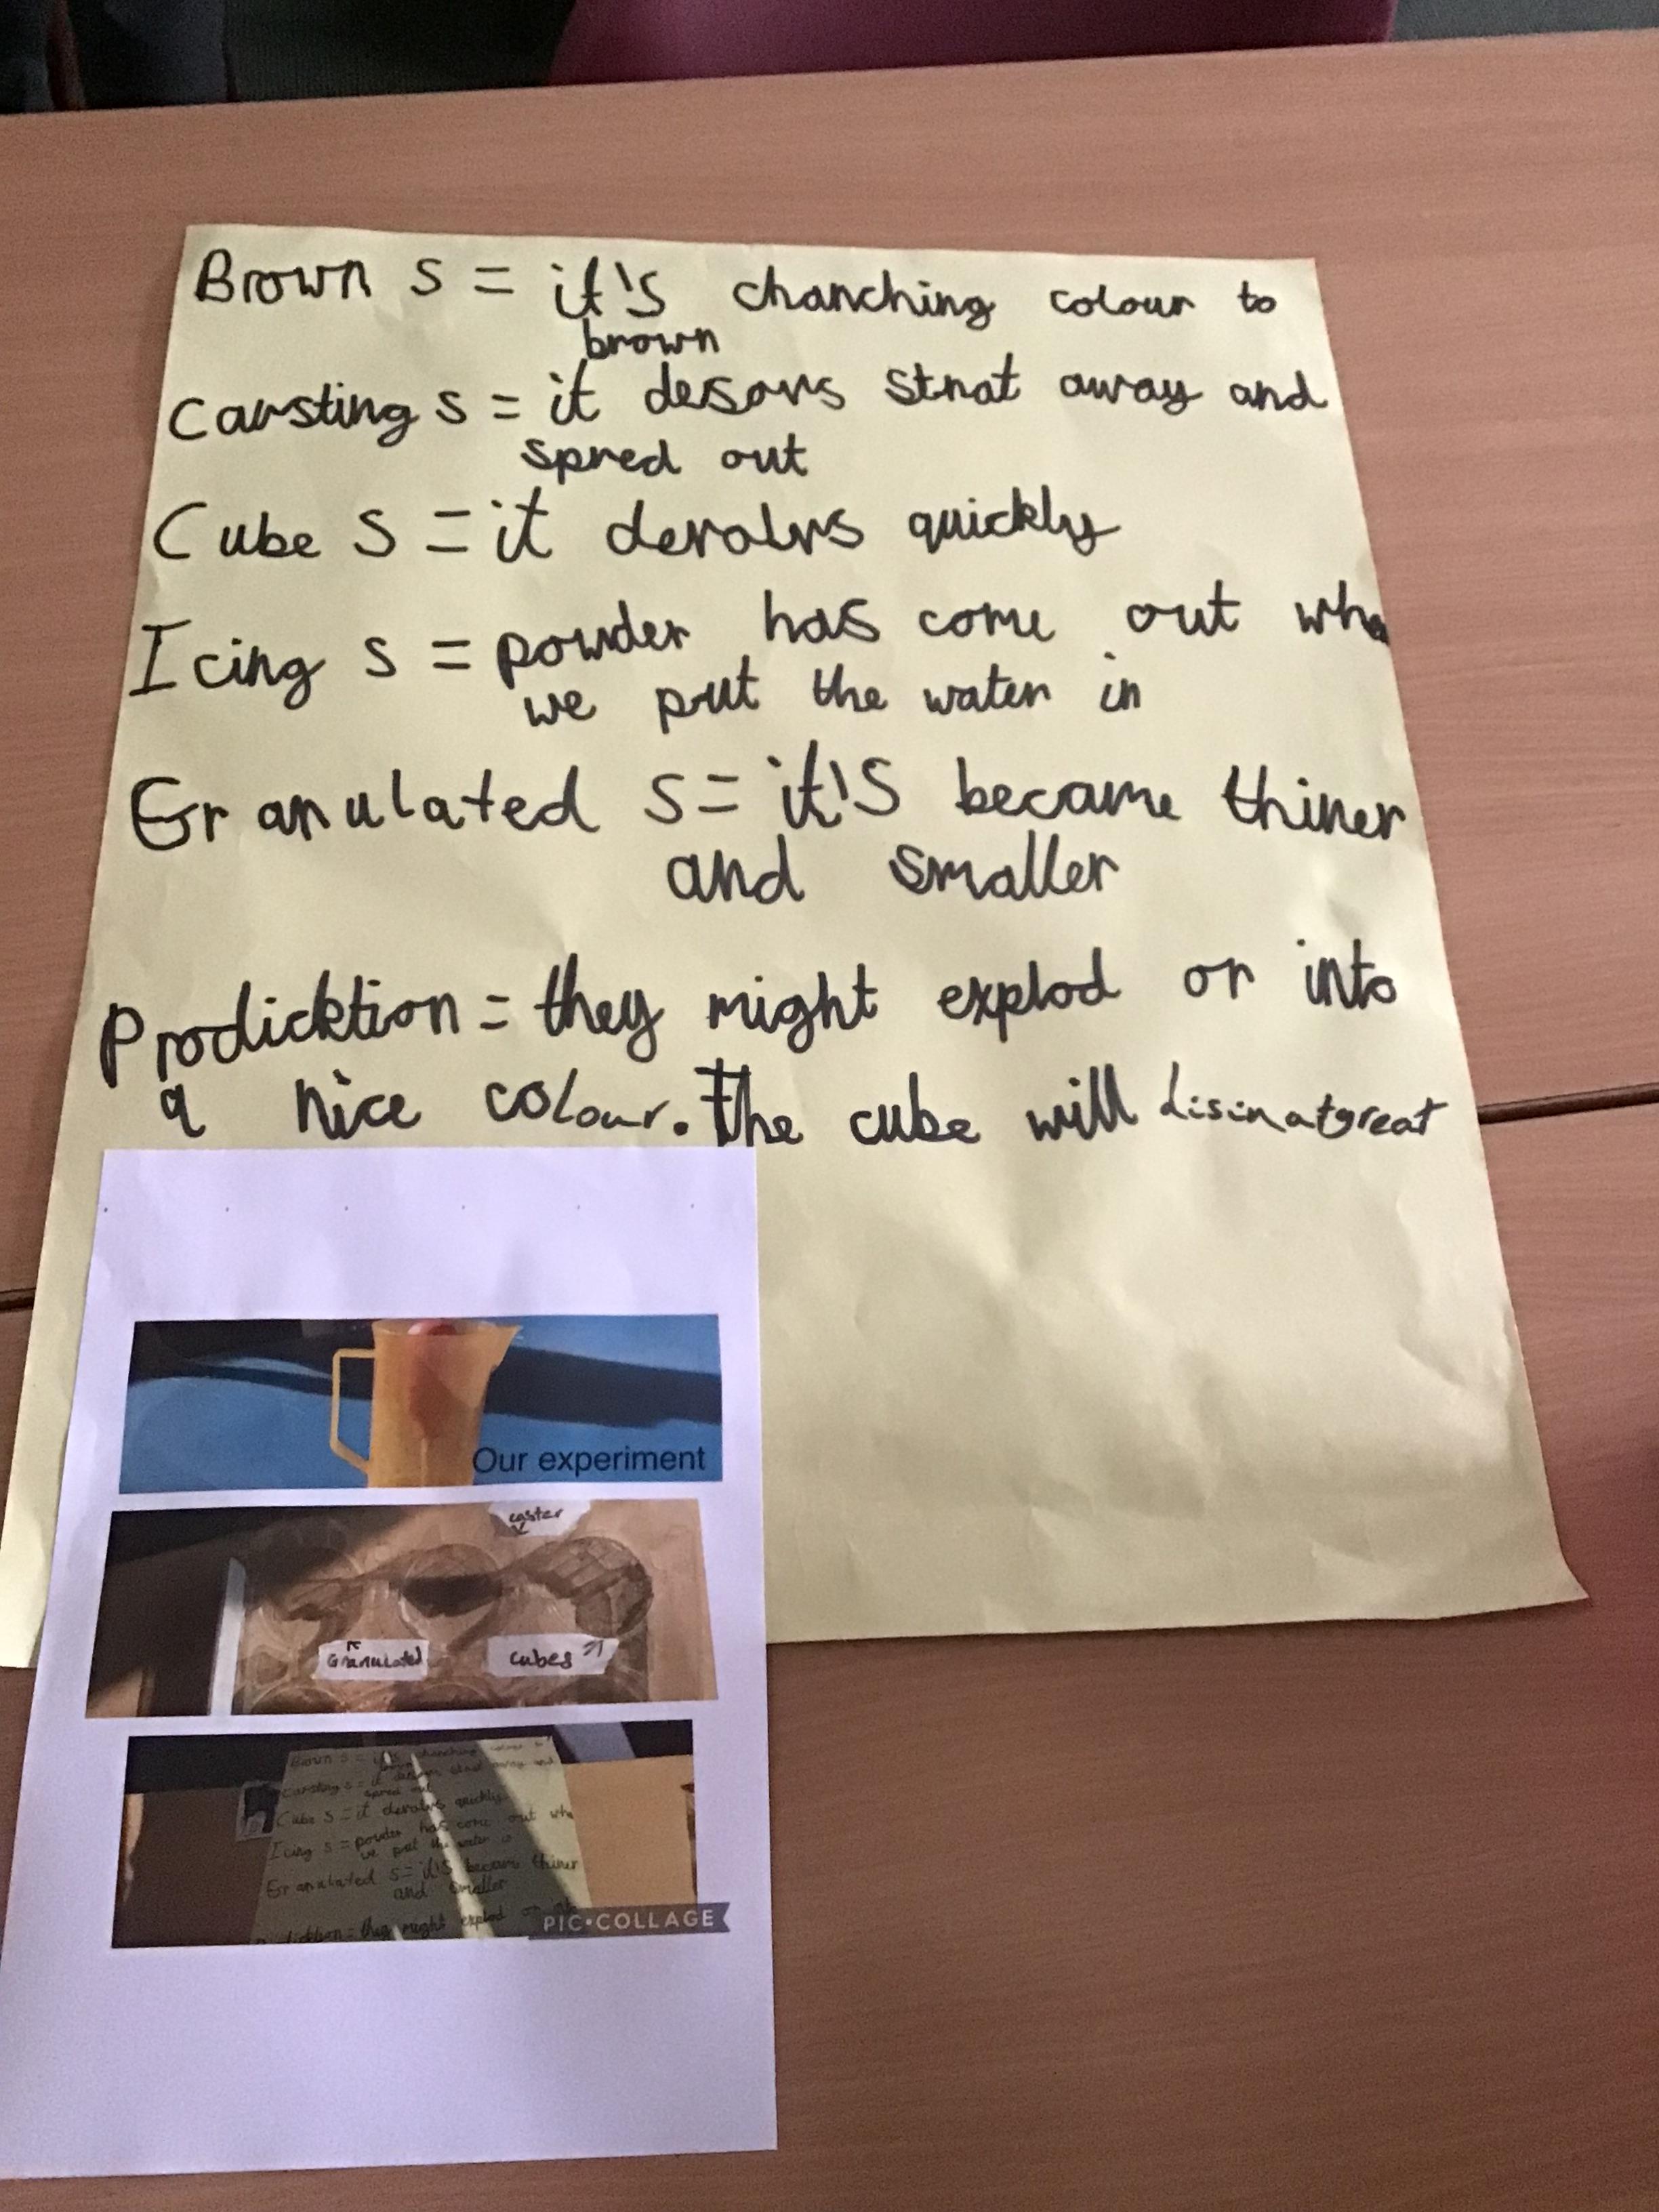 Brown s = it's chanching colour to
brown
Carsting s = it desovs strat away and
spred out
Cube s = it derolvs quickly
Icing s = powder has come out whe
we put the water in
Granulated s = it's became thiner
and smaller
Prodicktion = they might explod or into
a nice colour. The cube will disinatgreat
Our experiment
caster
Granulated
cubes
Brown s = it's chanching colour to
brown
carsting s = it desovs strat away and
spred out
Cube s = it derolvs quickly
Icing s = powder has come out whe
we put the water in
Granulated s = it's became thiner
and smaller
Prodicktion = they might explod or into
PIC•COLLAGE